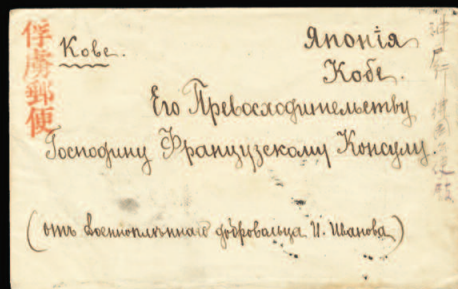 俘虜郵便
Кове.
Японія
Кобе.
Его Превосходительству
Господину Французскому Консулу.
(отъ военноплѣннаго добровольца И. Иванова)